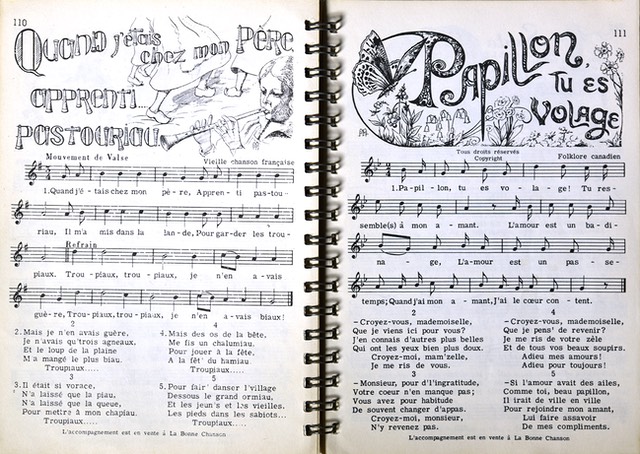 110
Quand j'étais chez mon Père,
apprenti...
pastouriau
Mouvement de Valse
Vieille chanson française
1.Quand j'é-tais chez mon pè-re, Appren-ti pas-tou-
riau, Il m'a mis dans la lan-de, Pour gar-der les trou-
Refrain
piaux. Trou-piaux, trou-piaux, je n'en a-vais
guè-re, Trou-piaux, trou-piaux, je n'en a-vais biaux!
2
2.Mais je n'en avais guère.
Je n'avais qu'trois agneaux.
Et le loup de la plaine
M'a mangé le plus biau.
Troupiaux.....
3
3.Il était si vorace.
N'a laissé que la piau.
N'a laissé que la queue,
Pour mettre à mon chapiau.
Troupiaux.....
4
4.Mais des os de la bête.
Me fis un chalumiau.
Pour jouer à la fête,
A la fêt' du hamiau
Troupiaux.....
5
5.Pour fair' danser l'village
Dessous le grand ormiau,
Et les jeun's et les vieilles.
Les pieds dans les sabiots....
Troupiaux.....
L'accompagnement est en vente à La Bonne Chanson
111
Papillon,
tu es
volage
Tous droits réservés
Copyright
Folklore canadien
1.Pa-pil-lon, tu es vo-la-ge! Tu res-
semble(s) à mon a-mant. L'amour est un ba-di-
na-ge, L'a-mour est un pas-se-
temps; Quand j'ai mon a-mant, J'ai le cœur con-tent.
2
-Croyez-vous, mademoiselle,
Que je viens ici pour vous?
J'en connais d'autres plus belles
Qui ont les yeux bien plus doux.
Croyez-moi, mam'zelle,
Je me ris de vous.
3
-Monsieur, pour d'l'ingratitude,
Votre coeur n'en manque pas;
Vous avez pour habitude
De souvent changer d'appas.
Croyez-moi, monsieur,
N'y revenez pas.
4
-Croyez-vous, mademoiselle,
Que je pens' de revenir?
Je me ris de votre zèle
Et de tous vos beaux soupirs.
Adieu mes amours!
Adieu pour toujours!
5
-Si l'amour avait des ailes,
Comme toi, beau papillon,
Il irait de ville en ville
Pour rejoindre mon amant,
Lui faire assavoir
De mes compliments.
L'accompagnement est en vente à La Bonne Chanson